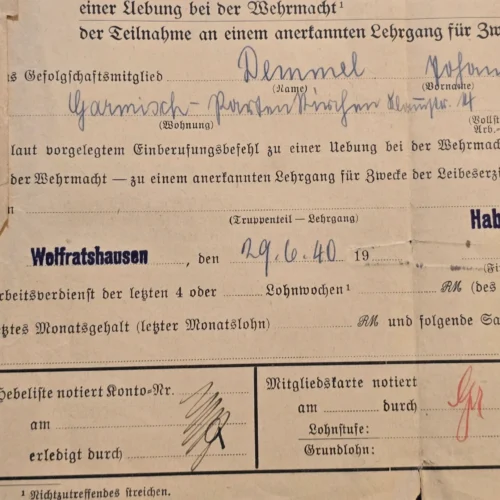 einer Uebung bei der Wehrmacht¹
der Teilnahme an einem anerkannten Lehrgang für Zwe
s Gefolgschaftsmitglied Demmel Johan
(Name) (Vorname)
Garmisch-Partenkirchen 4
(Wohnung) (Vollst
Arb.-
laut vorgelegtem Einberufungsbefehl zu einer Uebung bei der Wehrmac
der Wehrmacht — zu einem anerkannten Lehrgang für Zwecke der Leibeserzi
n
(Truppenteil — Lehrgang)
Hab
Wolfratshausen, den 29.6.40 19
(Fi
rbeitsverdienst der letzten 4 oder Lohnwochen¹ RM (des
tztes Monatsgehalt (letzter Monatslohn) RM und folgende Sa
Hebeliste notiert Konto-Nr.
am
erledigt durch
Mitgliedskarte notiert
am durch
Lohnstufe:
Grundlohn:
¹ Nichtzutreffendes streichen.